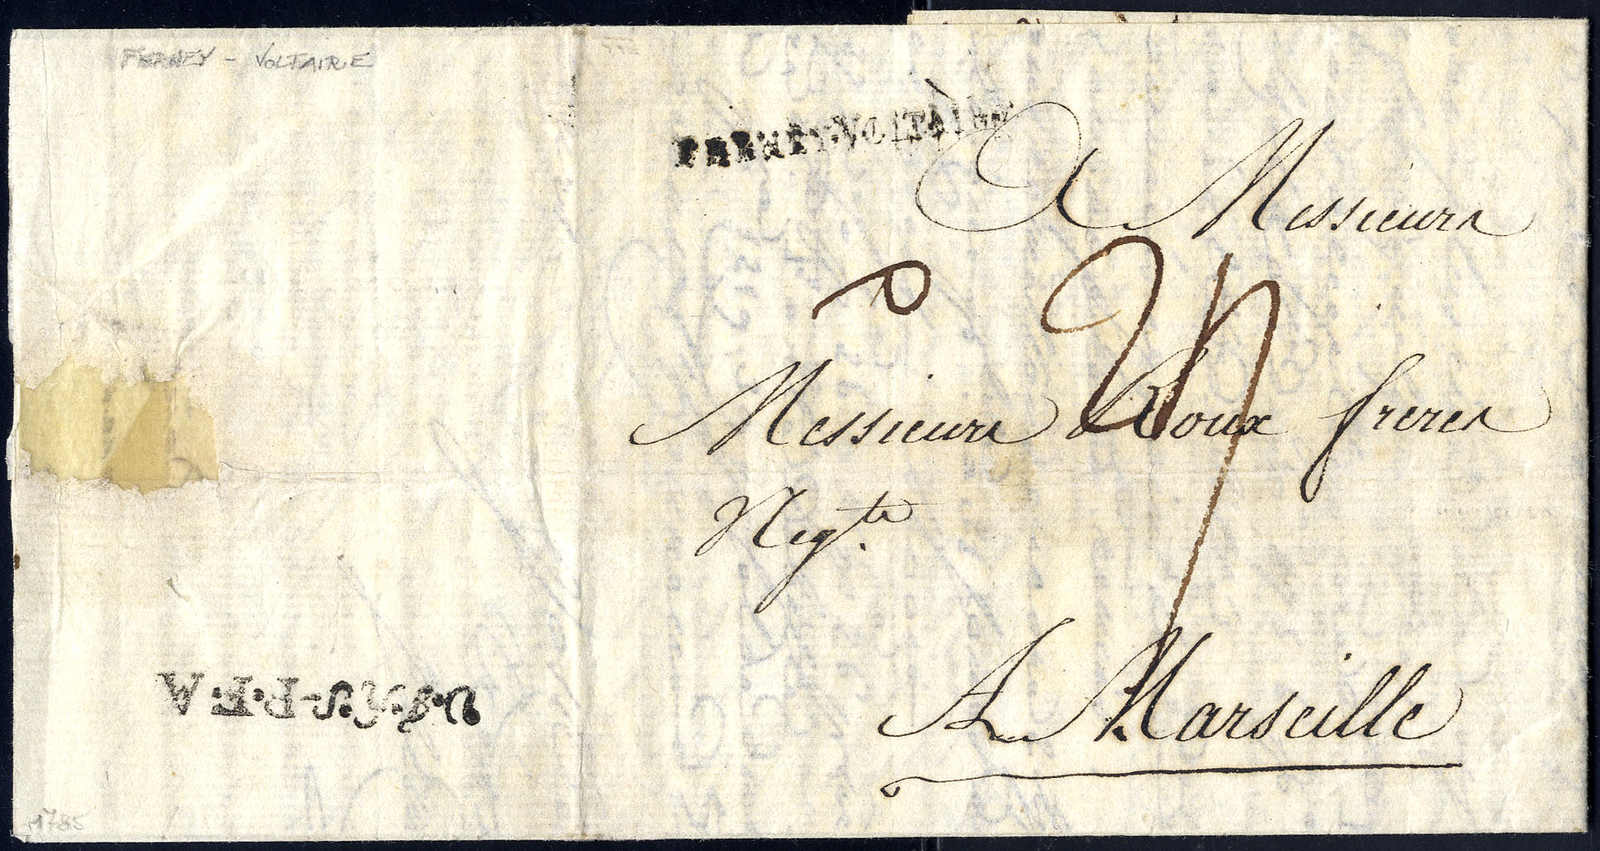 FERNEY - VOLTAIRE
FERNEY·VOLTAIRE
A Messieurs
Messieurs Roux freres
Negts.
A Marseille
1785